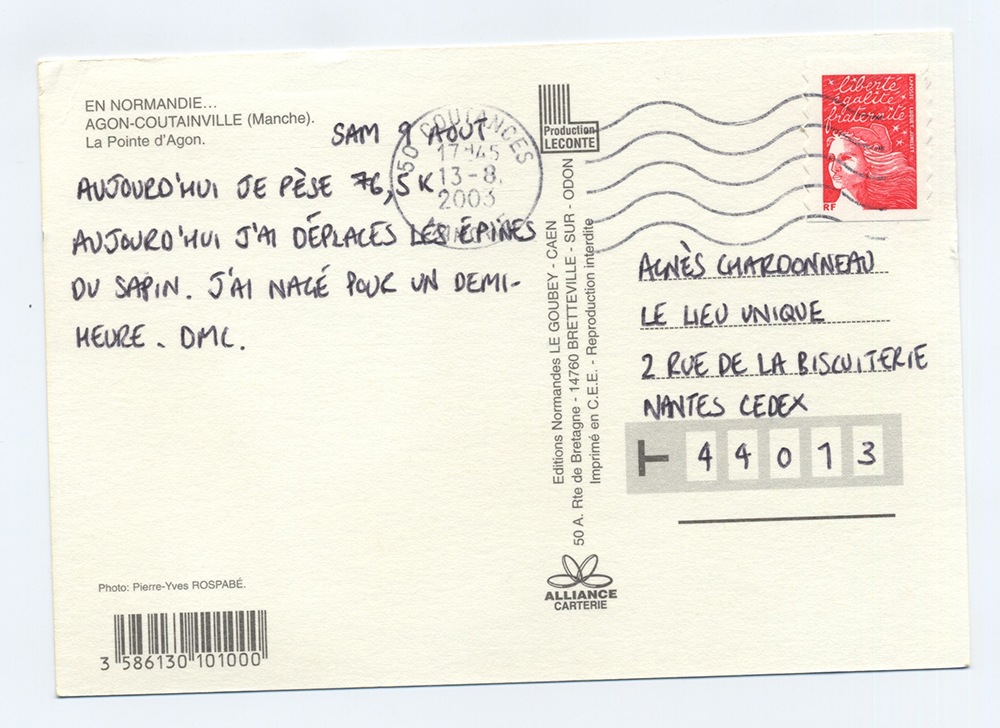 EN NORMANDIE...
AGON-COUTAINVILLE (Manche).
La Pointe d'Agon.
SAM 9 AOUT
AUJOURD'HUI JE PÈSE 76,5 K
AUJOURD'HUI J'AI DÉPLACES LES ÉPINES
DU SAPIN. J'AI NAGÉ POUR UN DEMI-
HEURE. DMC.
Photo: Pierre-Yves ROSPABÉ.
3 586130 101000
50 COUTANCES
17H45
13-8
2003
MANCHE
Production
LECONTE
Editions Normandes LE GOUBEY - CAEN
50 A. Rte de Bretagne - 14760 BRETTEVILLE - SUR - ODON
Imprimé en C.E.E. - Reproduction interdite
ALLIANCE
CARTERIE
liberté
égalité
fraternité
LA POSTE
RF
AGNÈS CHARDONNEAU
LE LIEU UNIQUE
2 RUE DE LA BISCUITERIE
NANTES CEDEX
44013